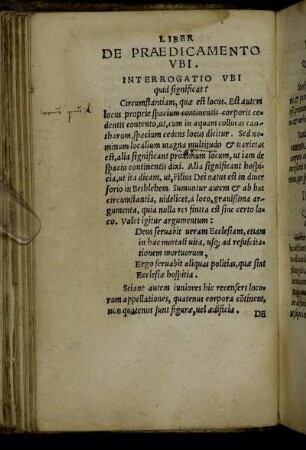 LIBER
DE PRAEDICAMENTO
VBI.
INTERROGATIO VBI
quid significat?
Circumstantiam, quæ est locus. Est autem
locus proprie spacium continentis corporis cedentis
contento, ut, cum in aquam collocas cantharum,
spacium cedens locus dicitur. Sed nominum
localium magna multitudo & uarietas
est, alia significant proximum locum, ut iam de
spacio continentis dixi. Alia significant hospitia,
ut ita dicam, ut, filius Dei natus est in diuersorio
in Bethlehem. Sumuntur autem & ab hac
circumstantia, uidelicet, a loco, grauissima argumenta,
quia nulla res finita est sine certo loco.
Valet igitur argumentum:
Deus seruabit ueram Ecclesiam, etiam
in hac mortali uita, usq; ad resuscitationem
mortuorum,
Ergo seruabit aliquas politias, quæ sint
Ecclesiæ hospitia.
Sciant autem iuniores hic recenseri locorum
appellationes, quatenus corpora cōtinent,
non quatenus sunt figuræ, uel ædificia.
DE